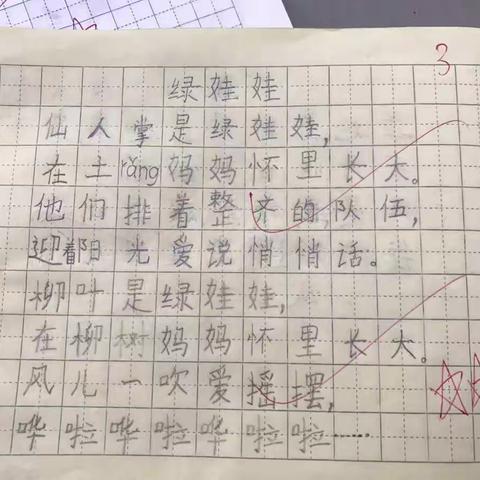 3
绿娃娃
仙人掌是绿娃娃，
在土rǎng妈妈怀里长大。
他们排着整齐的队伍，
迎着阳光爱说悄悄话。
柳叶是绿娃娃，
在柳树妈妈怀里长大。
风儿一吹爱摇摆，
哗啦哗啦哗啦啦……